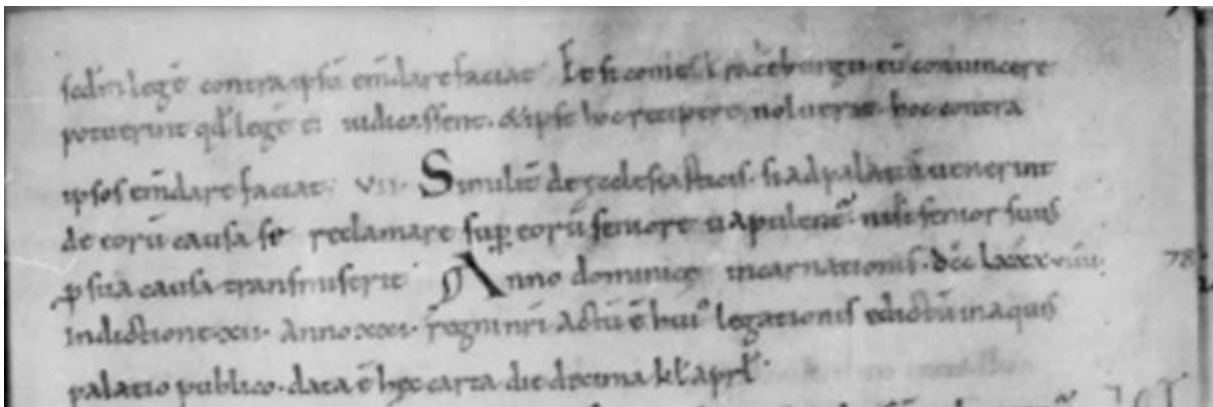 scdm̄ legē contra ipsū em̄dare faciat Et si comes ł raceburgii eū conuincere
potuerint qđ legē ei iudicassent. & ipse hoc recipere noluerit. hoc contra
ipsos em̄dare faciat; VII. Similit̄ de ęcclesiasticis. si ad palatiū uenerint
de eorū causa se reclamare sup̱ eorū seniore uapulent̃ nisi senior suus
p̱ sua causa transmiserit Anno dominicę incarnationis. dcc lxxxviiii. 78
indictione xii. anno xxi. regni nr̄i actū ē hui᾽ legationis edictū in aquis
palatio publico. data ē hęc carta die decima kł aprł